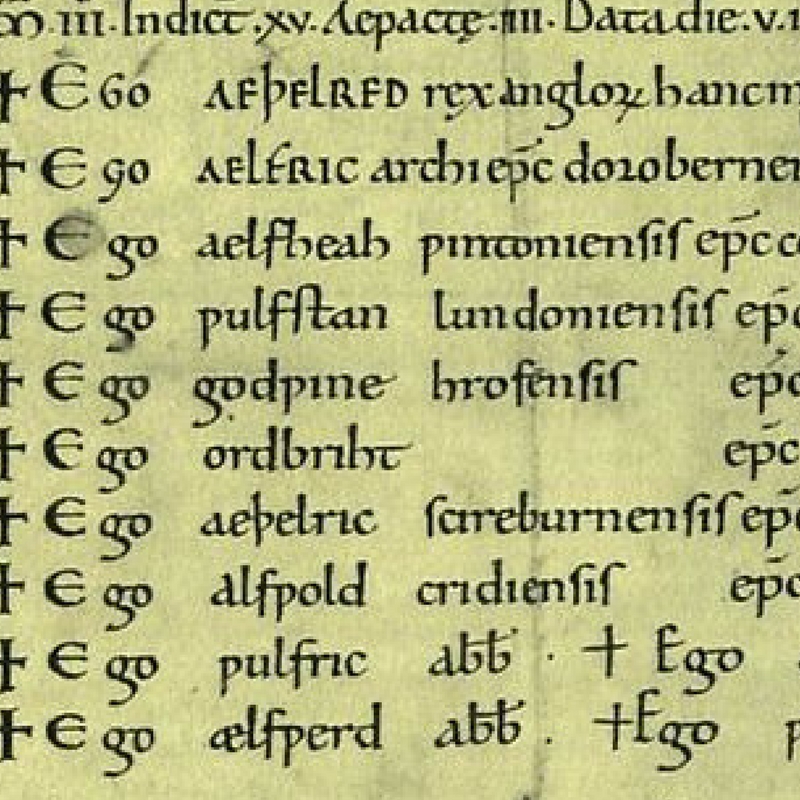 III. Indict̄. xv. Aepactę. IIII. Data die. v.
+ Ego AEÞELRED rex angloꝝ hanc
+ Ego AELFRIC archiep̄c dorobernen
+ Ego aelfheah ƿintoniensis ep̄c
+ Ego ƿulfstan lundoniensis ep̄c
+ Ego godƿine hrofensis ep̄c
+ Ego ordbriht ep̄c
+ Ego aeþelric scireburnensis ep̄c
+ Ego alfƿold cridiensis ep̄c
+ Ego ƿulfric ab̄b̄. + Ego
+ Ego ælfƿerd ab̄b̄. + Ego